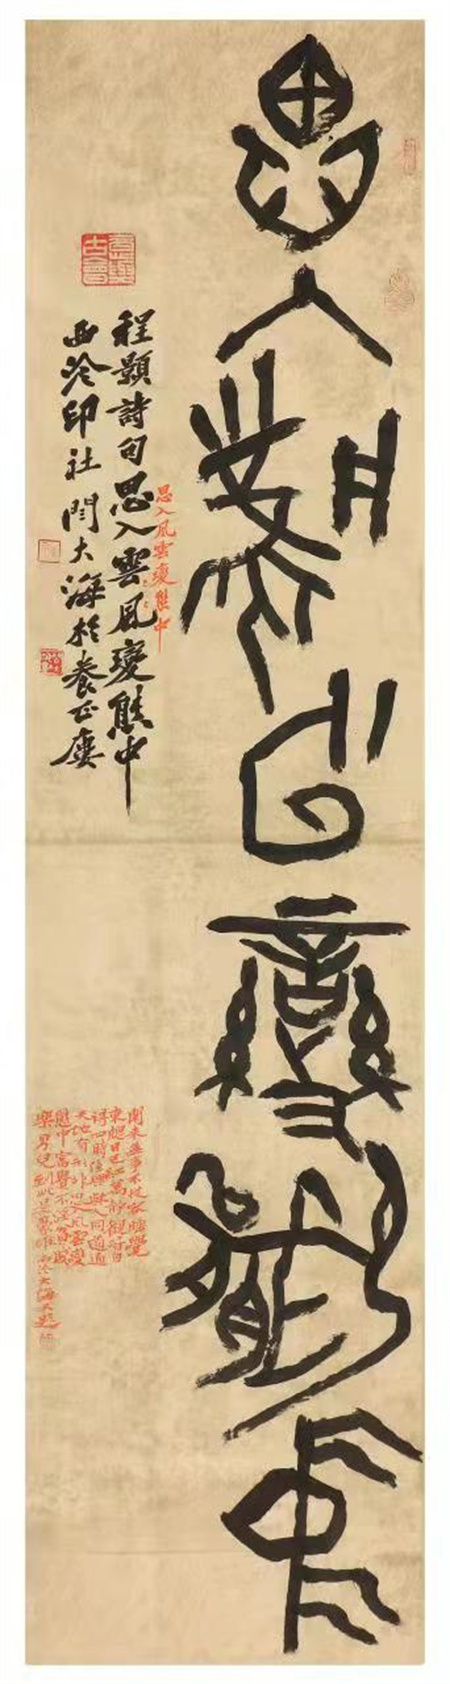 思入風云變態中
程顥詩句思入雲風變態中
西泠印社閆大海於養正廔
思入風雲變態中
閑来無事不從容睡覺
東窗日已紅萬物靜觀皆自
得四時佳興與人同道通
天地有形外思入風雲變
態中富貴不淫貧賤
樂男兒到此是豪雄西泠大海又題